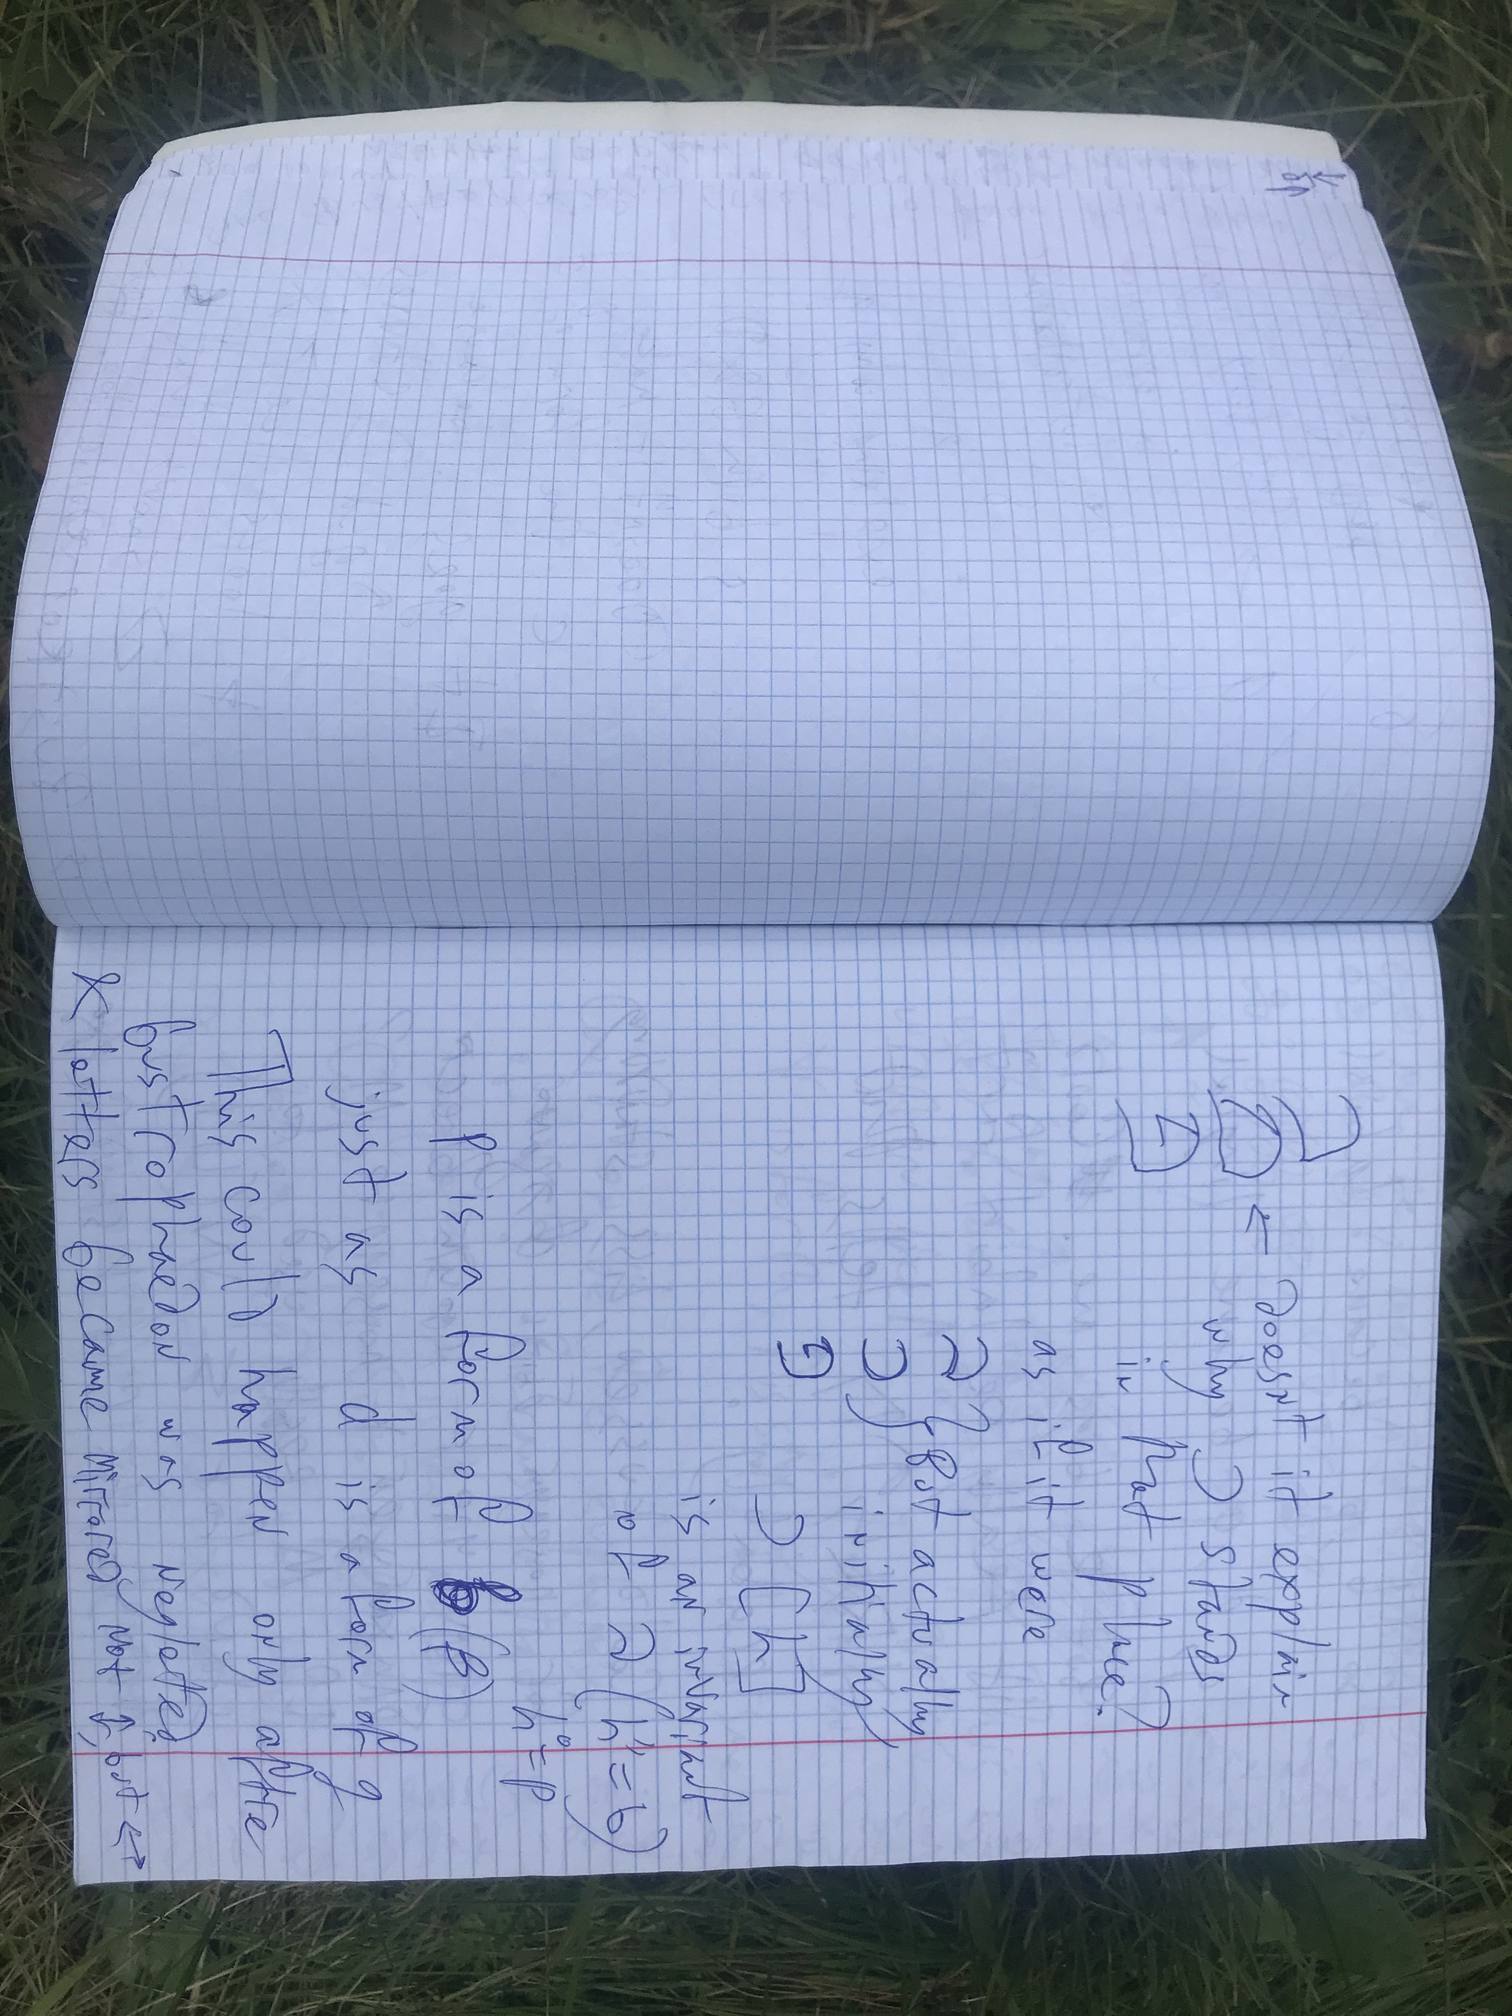 ← doesnt it explain
why Ɔ stands
in that place?
as if it were
2
C } But actually
G initialy
Ч
is an invariant
of 2 (h"=b)
h°=p
p is a form of b (B)
just as d is a form of g
This could happen only afte
bustrophedon was negleted
& letters became mirrored not ↕, but ↔